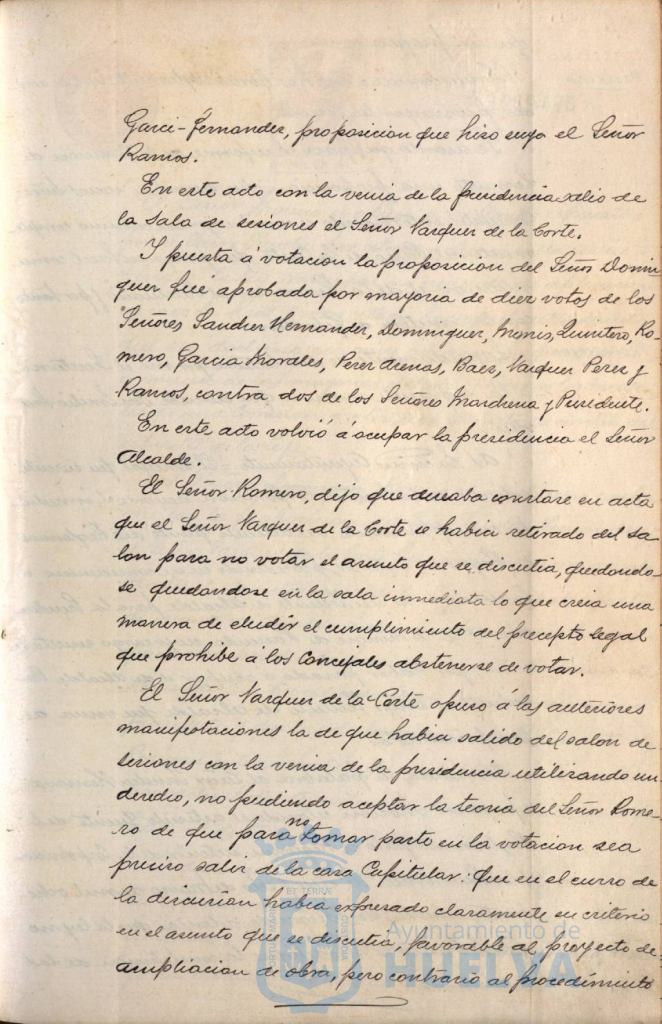 Garci-Fernandez, proposicion que hizo suya el Señor
Ramos.
En este acto con la venia de la presidencia salio de
la sala de sesiones el Señor Vazquez de la Corte.
Y puesta á votacion la proposicion del Señor Domin-
guez fué aprobada por mayoria de diez votos de los
Señores Sanchez Hernandez, Dominguez, Monis, Quintero, Ro-
mero, Garcia Morales, Perez Arenas, Baez, Vazquez Perez y
Ramos, contra dos de los Señores Marchena y Presidente.
En este acto volvió á ocupar la presidencia el Señor
Alcalde.
El Señor Romero, dijo que deseaba constase en acta
que el Señor Vazquez de la Corte se habia retirado del sa-
lon para no votar el asunto que se discutia, quedando-
se quedandose en la sala inmediata lo que creia una
manera de eludir el cumplimiento del precepto legal
que prohibe á los Concejales abstenerse de votar.
El Señor Vazquez de la Corte opuso á las anteriores
manifestaciones la de que habia salido del salon de
sesiones con la venia de la presidencia utilizando un
derecho, no pudiendo aceptar la teoria del Señor Rome-
ro de que para no tomar parte en la votacion sea
preciso salir de la casa Capitular: que en el curso de
la discusion habia expresado claramente su criterio
en el asunto que se discutia, favorable al proyecto de
ampliacion de obra, pero contrario al procedimiento
ET TERRE
PORTUS MARIS
CUSTODIA
Ayuntamiento de
HUELVA